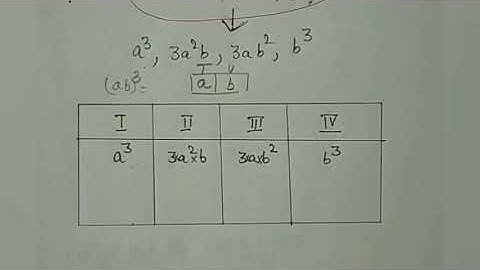 a³, 3a²b, 3ab², b³
T V
(ab)³= a b
I II III IV
a³ 3xa²xb 3xaxb² b³